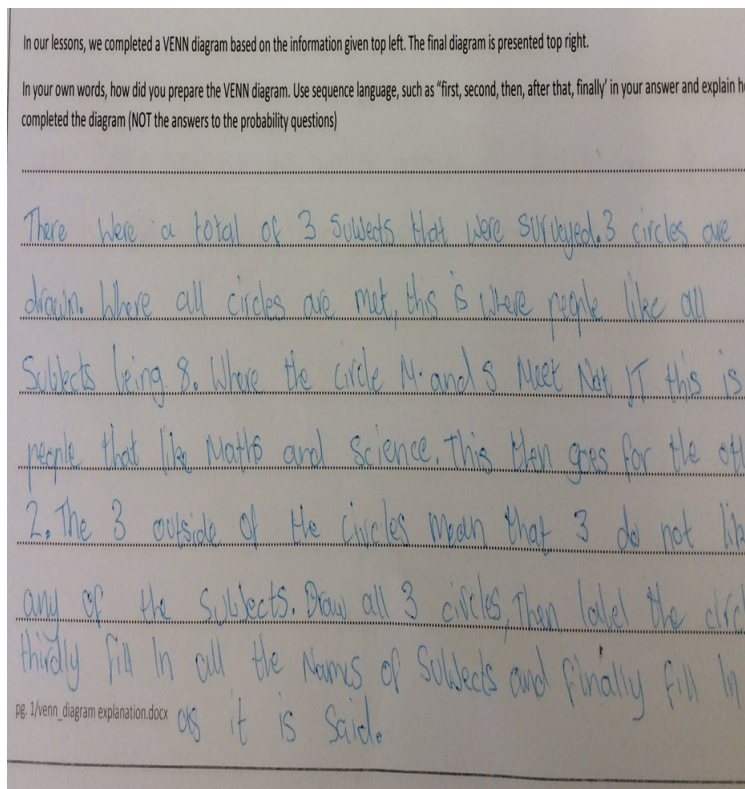 In our lessons, we completed a VENN diagram based on the information given top left. The final diagram is presented top right.
In your own words, how did you prepare the VENN diagram. Use sequence language, such as "first, second, then, after that, finally' in your answer and explain
completed the diagram (NOT the answers to the probability questions)
There were a total of 3 subjects that were surveyed. 3 circles are
drawn. Where all circles are met, this is where people like all
Subjects being 8. Where the circle M. and S Meet Not IT this is
people that like Maths and Science. This then goes for the
2. The 3 outside of the circles mean that 3 do not
any of the subjects. Draw all 3 circles, Then label the
thirdly fill in all the Names of Subjects and finally fill in
pg. 1/venn_diagram explanation.docx as it is said.